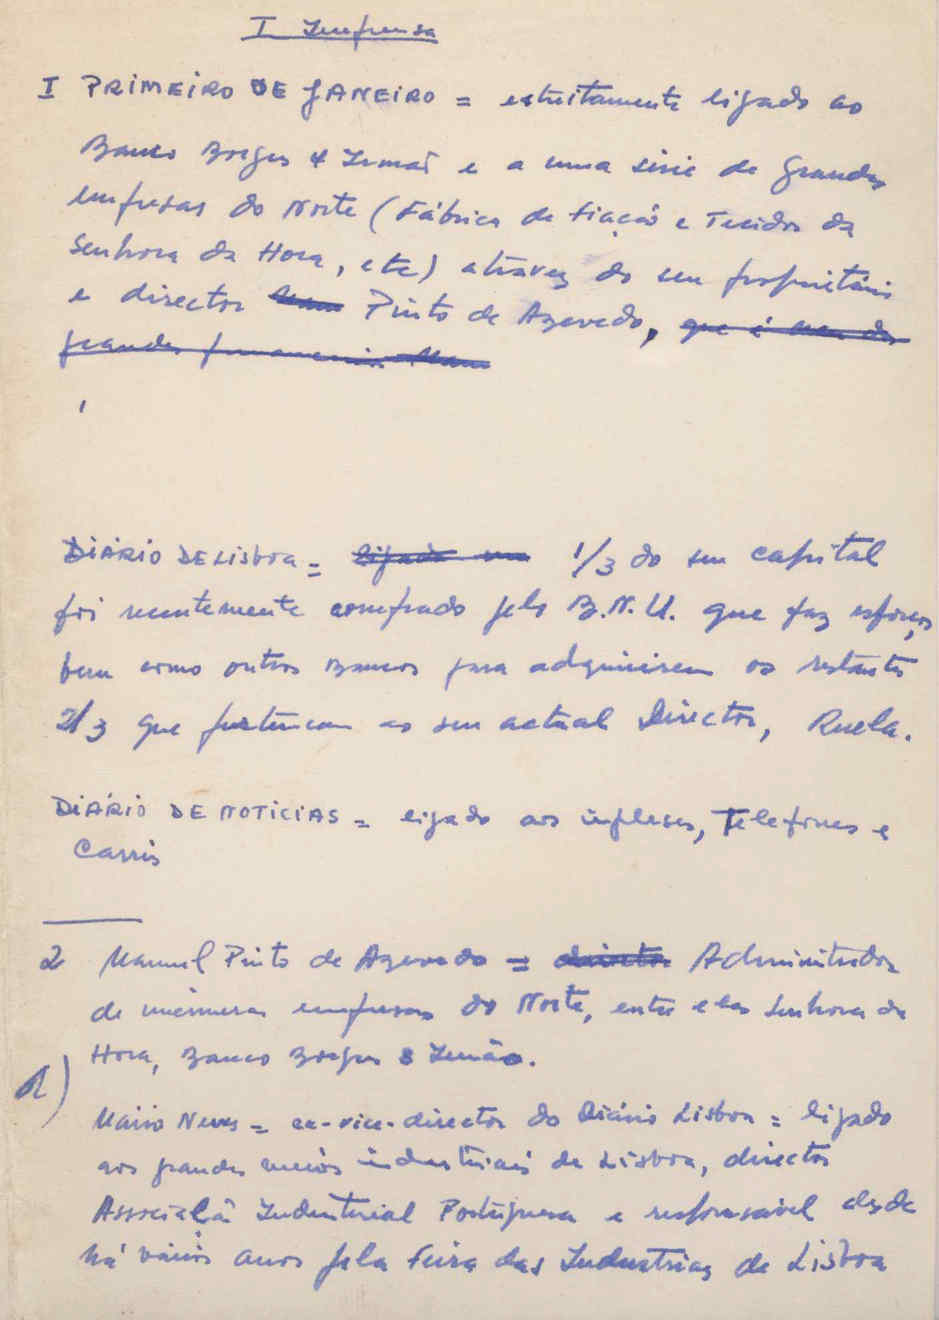 I Imprensa
I PRIMEIRO DE JANEIRO = estreitamente ligado ao
Banco Borges & Irmão e a uma série de grandes
empresas do Norte (Fábrica de Fiação e Tecidos da
Senhora da Hora, etc) através do seu proprietário
e director Pinto de Azevedo, que é um dos
grandes
DIÁRIO DE LISBOA = ligado 1/3 do seu capital
foi recentemente comprado pelo B.N.U. que faz esforços,
bem como outros Bancos para adquirirem os restantes
2/3 que pertencem ao seu actual Director, Ruela.
DIÁRIO DE NOTICIAS = ligado aos ingleses, Telefones e
Carris
2 Manuel Pinto de Azevedo = director Administrador
de inúmeras empresas do Norte, entre elas Senhora da
Hora, Banco Borges & Irmão.
Mário Neves = ex-vice-director do Diário Lisboa = ligado
aos grandes meios industriais de Lisboa, director
Associação Industrial Portuguesa e responsável desde
há vários anos pela Feira das Industrias de Lisboa